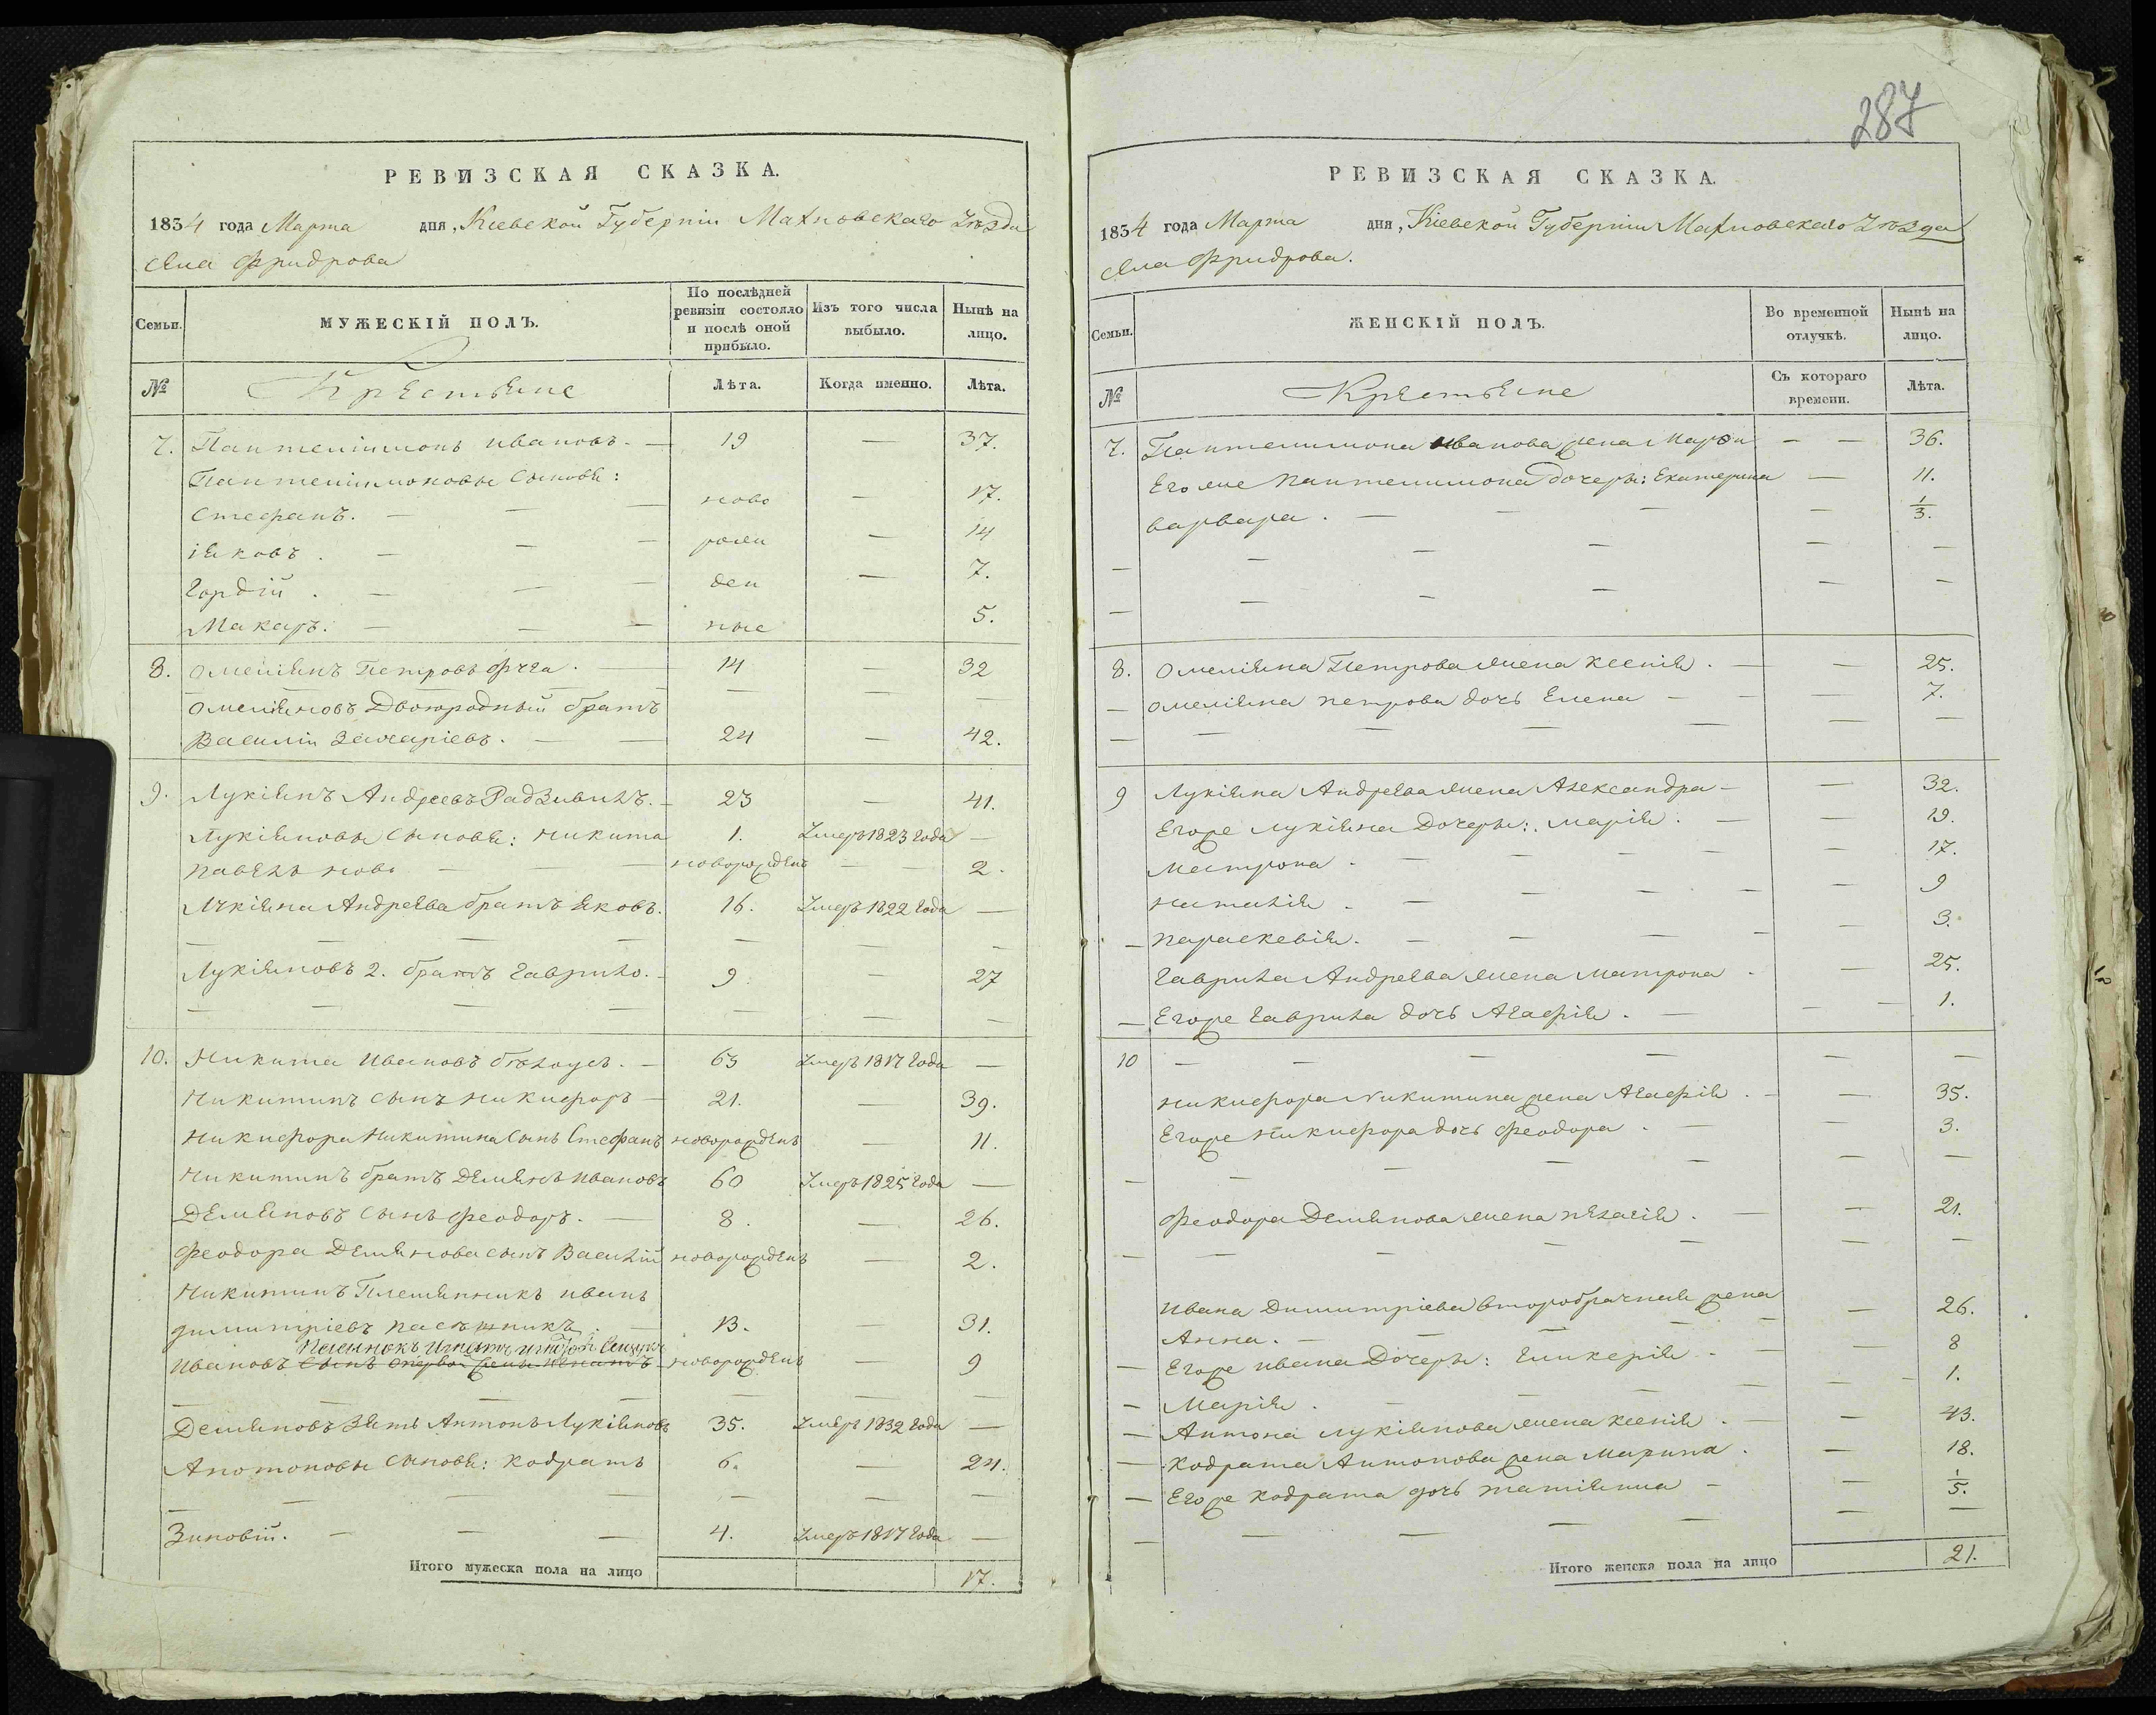 287
РЕВИЗСКАЯ СКАЗКА.
1834 года Марта дня, Кіевской Губерніи Махновскаго Уѣзда
Села Фридрова
Семьи. МУЖЕСКІЙ ПОЛЪ. По послѣдней ревизіи состояло и послѣ оной прибыло. Изъ того числа выбыло. Нынѣ на лицо.
№ Крестьяне Лѣта. Когда именно. Лѣта.
7. Пантелиімонъ ивановъ. — 19 — 37.
Пантелиімоновы Сыновья:
Стефанъ. — ново — 17.
іяковъ. — рожи — 14
Гордій. — ден — 7.
Макаръ. — ные 5.
8. Омеліянъ Петровъ — 14 — 32
Омеліяновъ Двоюродный братъ
Василіи Захаріевъ. — 24 — 42.
9. Лукіянъ Андреевъ Радзивилъ. — 23 — 41.
Лукіяновы Сыновья: Никита 1. Умеръ 1823 года —
Павелъ ново — новорожденъ — 2.
Лукіяна Андреева братъ Яковъ. 16. Умеръ 1822 года —
Лукіяновъ 2. братъ Гаврило. — 9 — 27
10. Никита Ивановъ бѣлоусъ. — 63 Умеръ 1817 года —
Никитинъ сынъ никифоръ — 21. — 39.
Никифора Никитина Сынъ Стефанъ новорожденъ — 11.
Никитинъ братъ Демянъ Ивановъ 60 Умеръ 1825 года —
Демяновъ Сынъ Феодоръ. — 8. — 26.
Феодора Демянова сынъ Василій новорожденъ — 2.
Никитинъ Племянникъ иванъ
димитріевъ пасѣшникъ. — 13. — 31.
Ивановъ сынъ с первой жены Игнатъ новорожденъ — 9
Демяновъ Зять Антонъ Лукіяновъ 35. Умеръ 1832 года —
Анотоновы Сыновья: Кодратъ 6. — 24.
Зиновій. — 4. Умеръ 1817 года —
Итого мужеска пола на лицо 17.
РЕВИЗСКАЯ СКАЗКА.
1834 года Марта дня, Кіевской Губерніи Махновскаго Уѣзда
Села Фридрова.
Семьи. ЖЕНСКІЙ ПОЛЪ. Во временной отлучкѣ. Нынѣ на лицо.
№ Крестьяне Съ котораго времени. Лѣта.
7. Пантелимона Иванова жена — — 36.
Его же Пантелимона Дочеры: Екатерина — 11.
варвара. — 1/3.
8. Омеліяна Петрова жена Ксенія. — 25.
Омеліяна петрова дочь Елена — 7.
9 Лукіяна Андреева жена Александра — 32.
Егоже Лукіяна Дочеры: марія. — 19.
Матрона. — 17.
Наталія. — 9
Параскевія. — 3.
Гаврила Андреева жена Матрона. — 25.
Егоже Гаврила дочь Агафія. — 1.
10 —
никифора Никитина жена Агафія. — 35.
Егоже Никифора дочь Феодора. — 3.
Феодора Демянова жена пелагія. — 21.
Ивана Димитріева второбрачная жена
Анна. — 26.
Егоже ивана Дочеры: Гликерія — 8
Марія. — 1.
Антона лукіянова жена Ксенія. — 43.
Кодрата Антонова жена Марина. — 18.
Егоже Кодрата дочь татіянна — 1/5.
Итого женска пола на лицо 21.